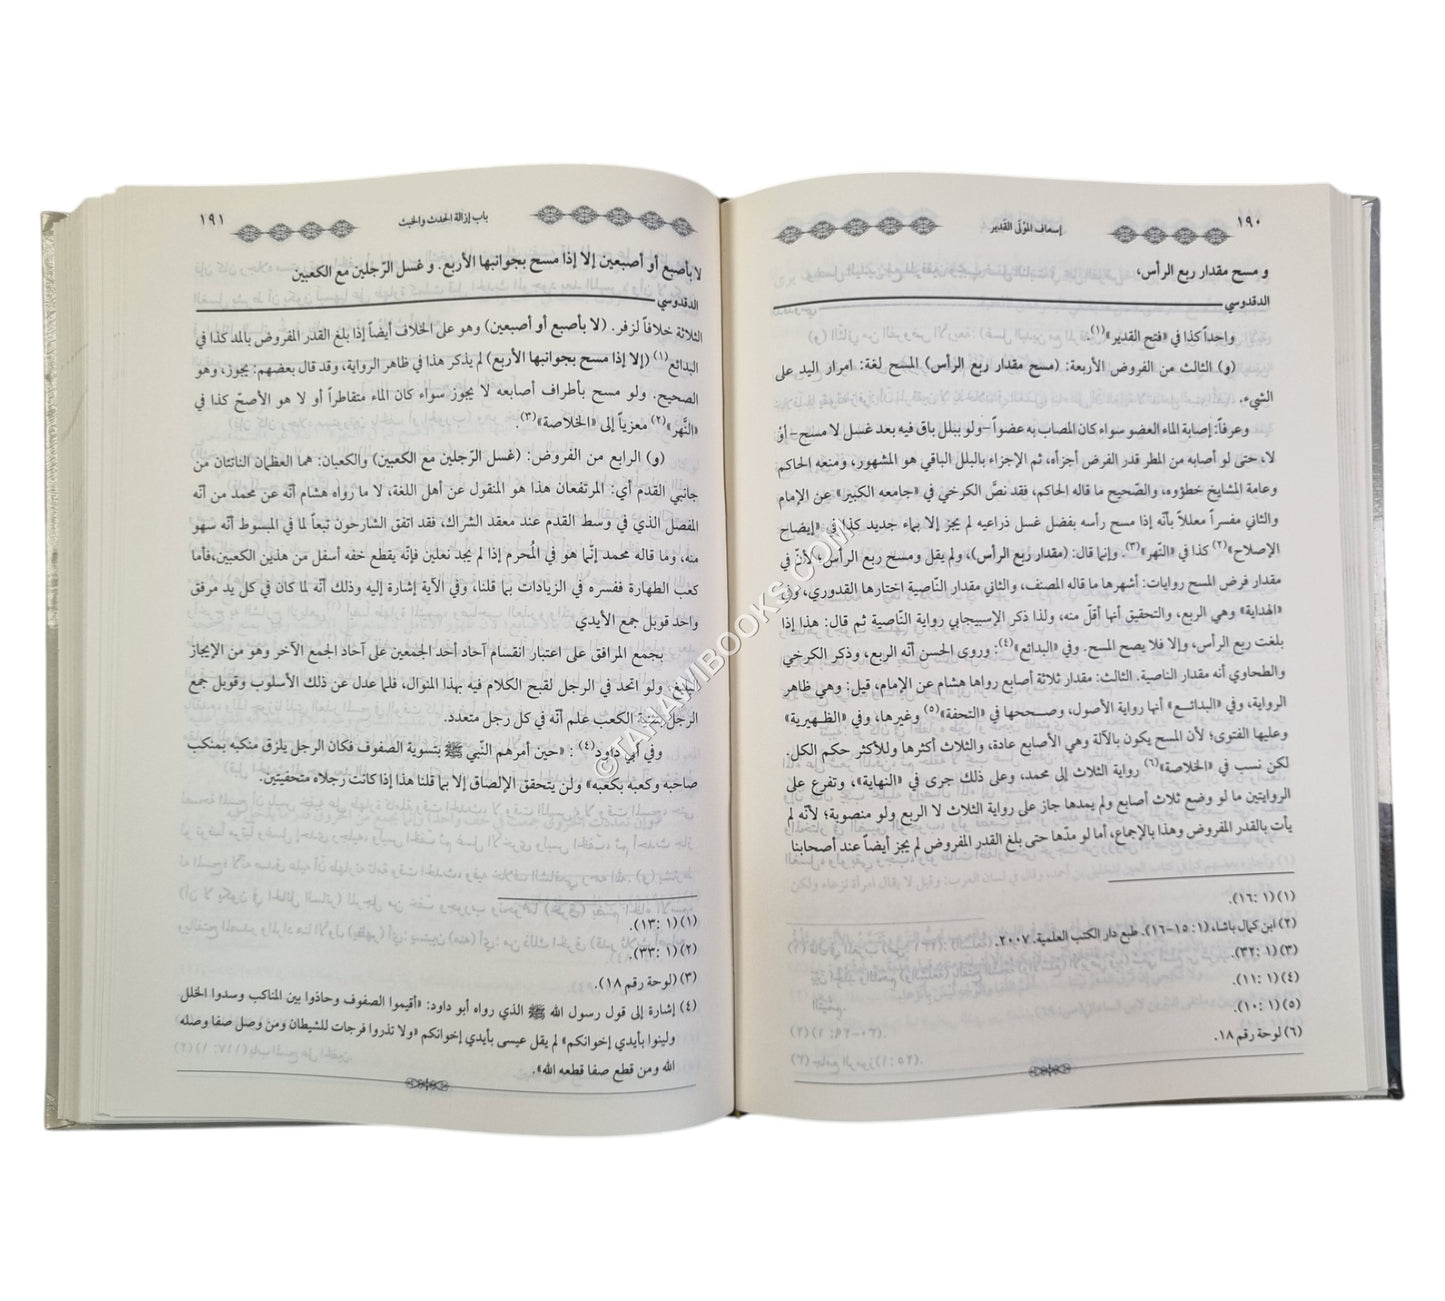 ١٩٠
إسعاف المَوْلَى القَدير
و مسح مقدار ربع الرأس،
الدقدوسي
واحداً كذا في «فتح القدير»(١).
(و) الثالث من الفروض الأربعة: (مسح مقدار ربع الرأس) المسح لغة: امرار اليد على
الشيء.
وعرفاً: إصابة الماء العضو سواء كان المصاب به عضواً -ولو ببلل باق فيه بعد غسل لا مسح- أوْ
لا، حتى لو أصابه من المطر قدر الفرض أجزأه، ثم الإجزاء بالبلل الباقي هو المشهور، ومنعه الحاكم
وعامة المشايخ خطؤوه، والصّحيح ما قاله الحاكم، فقد نصَّ الكرخي في «جامعه الكبير» عن الإمام
والثاني مفسراً معللاً بأنّه إذا مسح رأسه بفضل غسل ذراعيه لم يجز إلا بماء جديد كذا في «إيضاح
الإصلاح»(٢) كذا في «النّهر»(٣). وإنما قال: (مقدار ربع الرأس)، ولم يقل ومسح ربع الرأس، لأنّ في
مقدار فرض المسح روايات: أشهرها ما قاله المصنف، والثاني مقدار النّاصية اختارها القدوري، وفي
«الهداية» وهي الربع، والتحقيق أنها أقلّ منه، ولذا ذكر الإسبيجابي رواية النّاصية ثم قال: هذا إذا
بلغت ربع الرأس، وإلا فلا يصح المسح. وفي «البدائع»(٤): وروى الحسن أنّه الربع، وذكر الكرخي
والطحاوي أنه مقدار الناصية. الثالث: مقدار ثلاثة أصابع رواها هشام عن الإمام، قيل: وهي ظاهر
الرواية، وفي «البدائـــع» أنها رواية الأصول، وصـــححها في «التحفة»(٥) وغيرها، وفي «الظــهيرية»
وعليها الفتوى؛ لأن المسح يكون بالآلة وهي الأصابع عادة، والثلاث أكثرها وللأكثر حكم الكل.
لكن نسب في «الخلاصة»(٦) رواية الثلاث إلى محمد، وعلى ذلك جرى في «النهاية»، وتفرع على
الروايتين ما لو وضع ثلاث أصابع ولم يمدها جاز على رواية الثلاث لا الربع ولو منصوبة؛ لأنّه لم
يأت بالقدر المفروض وهذا بالإجماع، أما لو مدّها حتى بلغ القدر المفروض لم يجز أيضاً عند أصحابنا
(١) (١: ١٦).
(٢) ابن كمال باشا، (١: ١٥-١٦). طبع دار الكتب العلمية. ٢٠٠٧.
(٣) (١: ٣٢).
(٤) (١: ١١).
(٥) (١: ١٠).
(٦) لوحة رقم ١٨.
باب إزالة الحدث والخبث
١٩١
لا بأصبع أو أصبعين إلا إذا مسح بجوانبها الأربع. و غسل الرّجلين مع الكعبين
الدقدوسي
الثلاثة خلافاً لزفر. (لا بأصبع أو أصبعين) وهو على الخلاف أيضاً إذا بلغ القدر المفروض بالمد كذا في
البدائع(١) (إلا إذا مسح بجوانبها الأربع) لم يذكر هذا في ظاهر الرواية، وقد قال بعضهم: يجوز، وهو
الصحيح. ولو مسح بأطراف أصابعه لا يجوز سواء كان الماء متقاطراً أو لا هو الأصحّ كذا في
«النَّهر»(٢) معزياً إلى «الخلاصة»(٣).
(و) الرابع من الفروض: (غسل الرّجلين مع الكعبين) والكعبان: هما العظمان الناتئان من
جانبي القدم أي: المرتفعان هذا هو المنقول عن أهل اللغة، لا ما رواه هشام أنّه عن محمد من أنّه
المفصل الذي في وسط القدم عند معقد الشراك، فقد اتفق الشارحون تبعاً لما في المبسوط أنّه سهو
منه، وما قاله محمد إنّما هو في المُحرم إذا لم يجد نعلين فإنّه يقطع خفه أسفل من هذين الكعبين، فأما
كعب الطهارة ففسره في الزيادات بما قلنا، وفي الآية إشارة إليه وذلك أنّه لما كان في كل يد مرفق
واحد قوبل جمع الأيدي
بجمع المرافق على اعتبار انقسام آحاد أحد الجمعين على آحاد الجمع الآخر وهو من الإيجاز
البليغ، ولو اتحد في الرجل لقبح الكلام فيه بهذا المنوال، فلما عدل عن ذلك الأسلوب وقوبل جمع
الرجل بتثنية الكعب علم أنّه في كل رجل متعدد.
وفي أبي داود(٤): «حين أمرهم النّبي ﷺ بتسوية الصفوف فكان الرجل يلزق منكبه بمنكب
صاحبه وكعبه بكعبه» ولن يتحقق الإلصاق إلا بما قلنا هذا إذا كانت رجلاه متحفيتين.
(١) (١: ١٣).
(٢) (١: ٣٣).
(٣) (لوحة رقم ١٨).
(٤) إشارة إلى قول رسول الله ﷺ الذي رواه أبو داود: «أقيموا الصفوف وحاذوا بين المناكب وسدوا الخلل
ولينوا بأيدي إخوانكم» لم يقل عيسى بأيدي إخوانكم «ولا تذروا فرجات للشيطان ومن وصل صفا وصله
الله ومن قطع صفا قطعه الله».
© TAHAWIBOOKS.COM